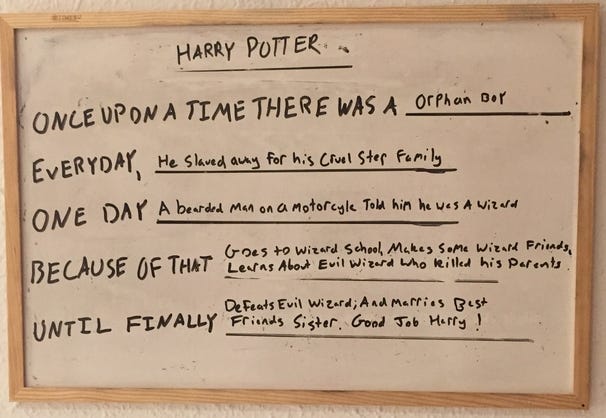 HARRY POTTER
ONCE UPON A TIME THERE WAS A Orphan Boy
EVERYDAY, He Slaved away for his Cruel Step Family
ONE DAY A bearded Man on a Motorcyle Told him he was A Wizard
BECAUSE OF THAT Goes to Wizard School, Makes Some Wizard Friends,
Learns About Evil Wizard Who Killed his Parents.
UNTIL FINALLY Defeats Evil Wizard; And Marries Best
Friends Sister. Good Job Harry!